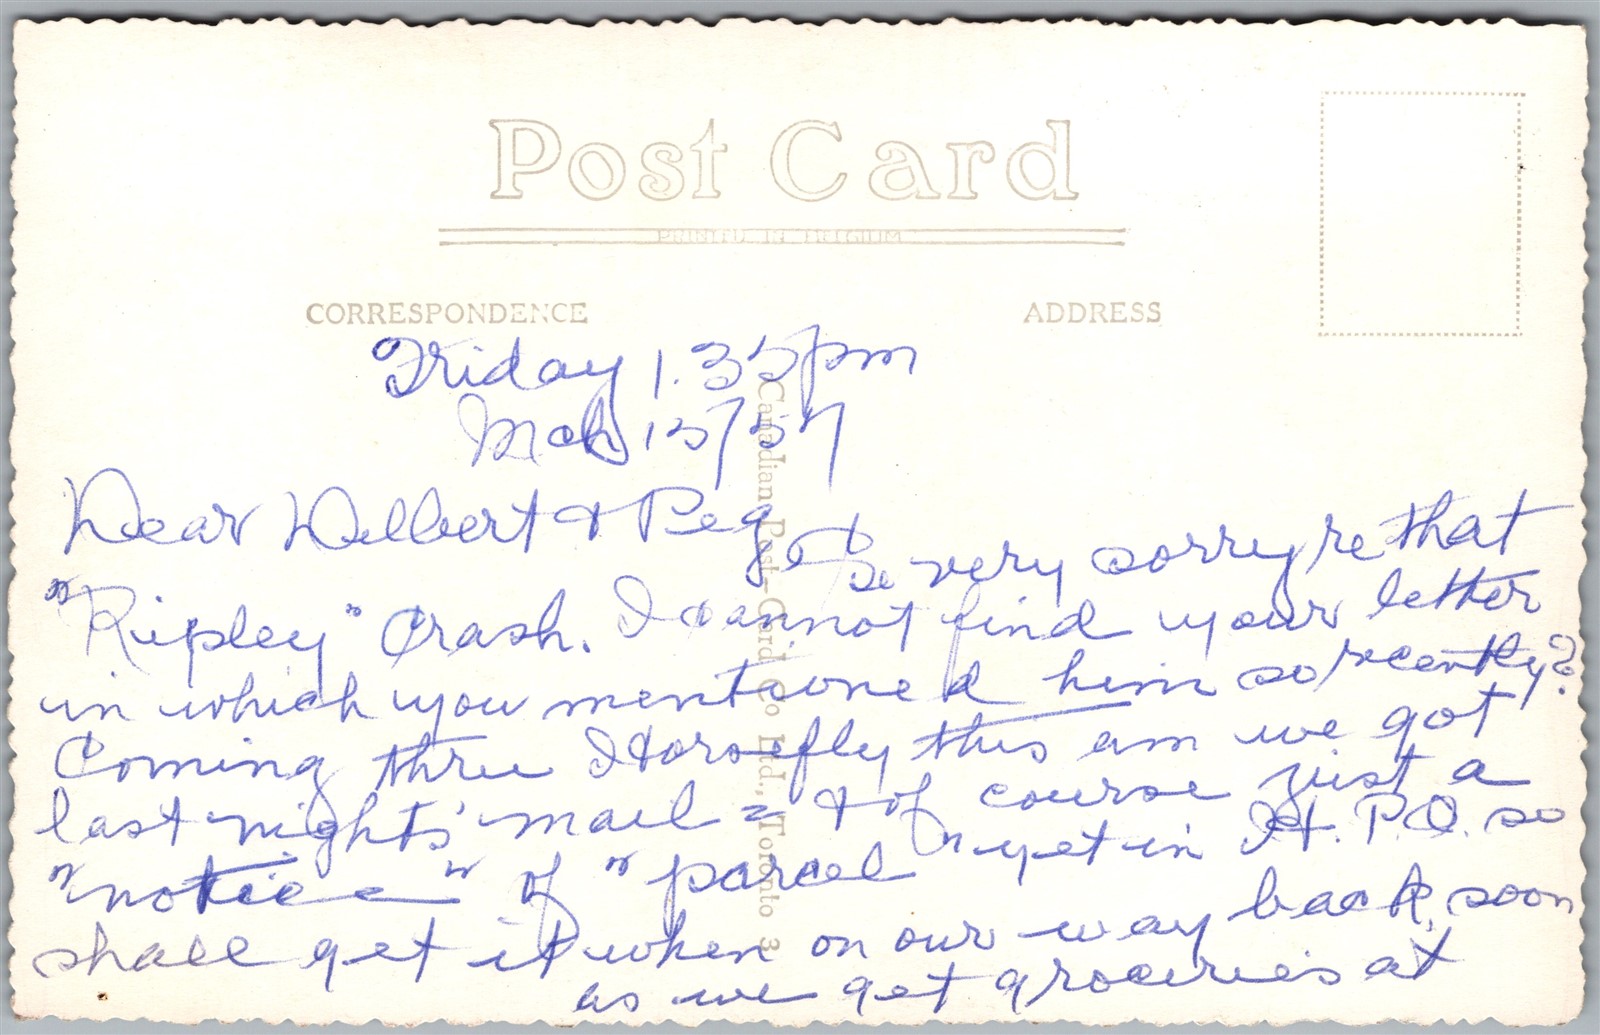 Post Card
PRINTED IN BELGIUM
CORRESPONDENCE
ADDRESS
Canadian Post Card Co Ltd., Toronto 3
Friday 1.35pm
Mch 15/57
Dear Delbert & Peg, So very sorry re that
"Ripley" Crash. I cannot find your letter
in which you mentioned him so recently?
Coming thru Horsefly this am we got
last nights' mail = & of course just a
"notice" of "parcel" yet in H. P.O. so
shall get it when on our way back, soon
as we get groceries at